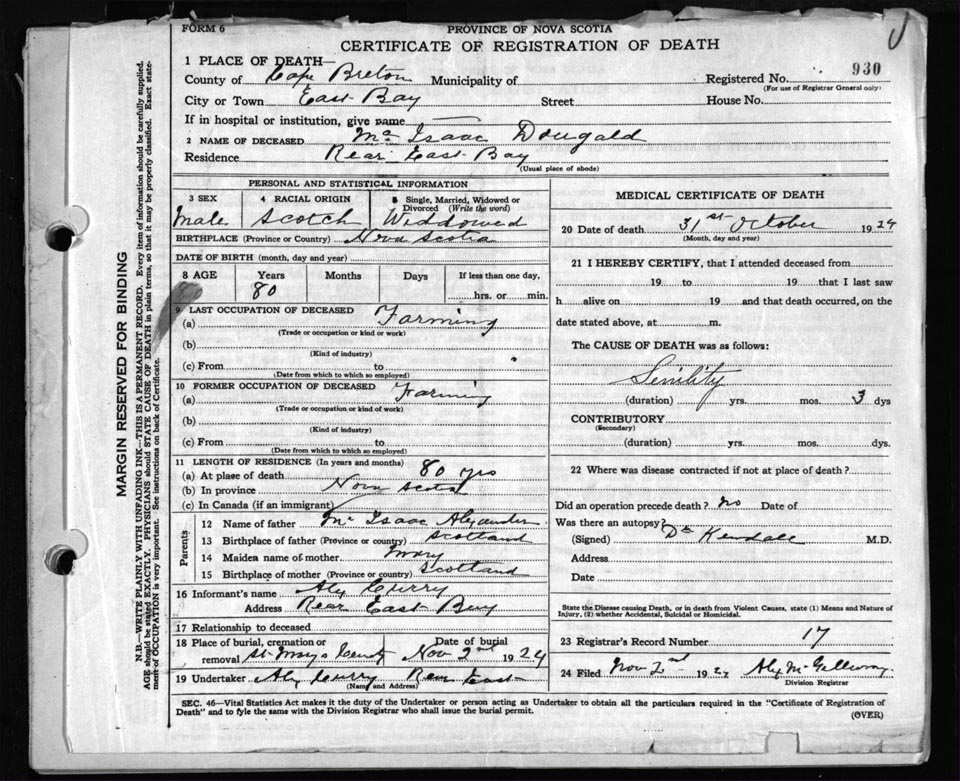 FORM 6
PROVINCE OF NOVA SCOTIA
CERTIFICATE OF REGISTRATION OF DEATH
1 PLACE OF DEATH—
County of Cape Breton Municipality of Registered No. 930
(For use of Registrar General only)
City or Town East Bay Street House No.
If in hospital or institution, give name
2 NAME OF DECEASED Mc Isaac Dougald
Residence Rear East Bay
(Usual place of abode)
PERSONAL AND STATISTICAL INFORMATION
3 SEX Male
4 RACIAL ORIGIN Scotch
5 Single, Married, Widowed or Divorced (Write the word) Widdowed
BIRTHPLACE (Province or Country) Nova Scotia
DATE OF BIRTH (month, day and year)
8 AGE Years 80 Months Days If less than one day, hrs. or min.
9 LAST OCCUPATION OF DECEASED
(a) Farming
(Trade or occupation or kind or work)
(b)
(Kind of industry)
(c) From to
(Date from which to which so employed)
10 FORMER OCCUPATION OF DECEASED
(a) Farming
(Trade or occupation or kind of work)
(b)
(Kind of industry)
(c) From to
(Date from which to which so employed)
11 LENGTH OF RESIDENCE (In years and months)
(a) At place of death 80 yrs
(b) In province Nova Scotia
(c) In Canada (if an immigrant)
Parents
12 Name of father Mc Isaac Alexander
13 Birthplace of father (Province or country) Scotland
14 Maiden name of mother Mary
15 Birthplace of mother (Province or country) Scotland
16 Informant's name Alex Curry
Address Rear East Bay
17 Relationship to deceased
18 Place of burial, cremation or removal St Marys Date of burial Nov 2nd 1924
19 Undertaker Alex Curry Rear East
(Name and Address)
MEDICAL CERTIFICATE OF DEATH
20 Date of death 31st October 1924
(Month, day and year)
21 I HEREBY CERTIFY, that I attended deceased from
19 to 19 that I last saw
h alive on 19 and that death occurred, on the
date stated above, at m.
The CAUSE OF DEATH was as follows:
Senility
(duration) yrs. mos. 3 dys
CONTRIBUTORY
(Secondary)
(duration) yrs. mos. dys.
22 Where was disease contracted if not at place of death?
Did an operation precede death? no Date of
Was there an autopsy?
(Signed) Dr Kendall M.D.
Address
Date
State the Disease causing Death, or in death from Violent Causes, state (1) Means and Nature of
Injury, (2) whether Accidental, Suicidal or Homicidal.
23 Registrar's Record Number 17
24 Filed Nov 2nd 192
Division Registrar
SEC. 46—Vital Statistics Act makes it the duty of the Undertaker or person acting as Undertaker to obtain all the particulars required in the "Certificate of Registration of
Death" and to fyle the same with the Division Registrar who shall issue the burial permit.
(OVER)
MARGIN RESERVED FOR BINDING
N.B.—WRITE PLAINLY WITH UNFADING INK—THIS IS A PERMANENT RECORD. Every item of information should be carefully supplied.
AGE should be stated EXACTLY. PHYSICIANS should STATE CAUSE OF DEATH in plain terms, so that it may be properly classified. Exact state-
ment of OCCUPATION is very important. See instructions on back of Certificate.